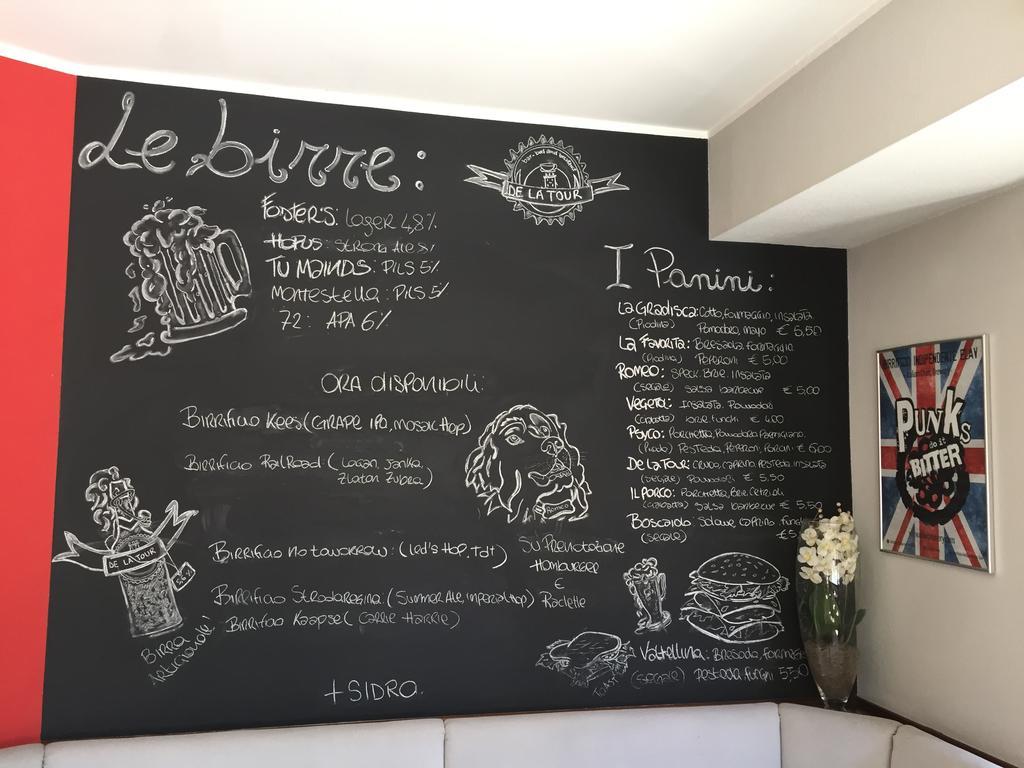 Le birre:
FOSTER'S: Lager 4,8%
HOPUS: STRONG ALE 8%
TU MAINDS: PILS 5%
Montestella: PILS 5%
72: APA 6%
ORA DISPONIBILI:
Birrificio Kees (GRAPE IPA, MOSAIC Hop)
Birrificio RailRoad (Logan, Janka,
Zlatan Zubra)
Birrificio no tomorrow: (Led's Hop, TdT)
Birrificio Stradaregina (Summer Ale, imperial Hop)
Birrificio Kaapse (Carrie Harrie)
+ SIDRO.
DE LA TOUR
DE LA TOUR
BIRRA
ARTIGIANALE!
ROMEO
SU PRENOTAZIONE
HAMBURGER
E
Raclette
I Panini:
La Gradisca: Cotto, formaggio, insalata
(Piadina) Pomodoro, mayo € 6,50
La Favorita: Bresaola formaggio
(Piadina) Peperoni € 5,00
Romeo: Speck Brie Insalata
(segale) salsa barbecue € 5,00
Vegeta: Insalata Pomodori
funghi € 4,00
Psyco: Porchetta, Pomodoro Parmigiano,
Pestoda, Peperoni, € 6,00
De la Tour: Crudo, caprino, Pestoda, insalata
(segale) Pomodori € 5,50
IL PORCO: Porchetta, Brie, Cetrioli
salsa barbecue € 5,50
Boscaiolo: Salame Caprino
(segale) €5
Valtellina: Bresaola, formaggio
(segale) pestoda funghi 5,50
BIRRIFICIO INDIPENDENTE ELAV
PUNKS
do it
BITTER